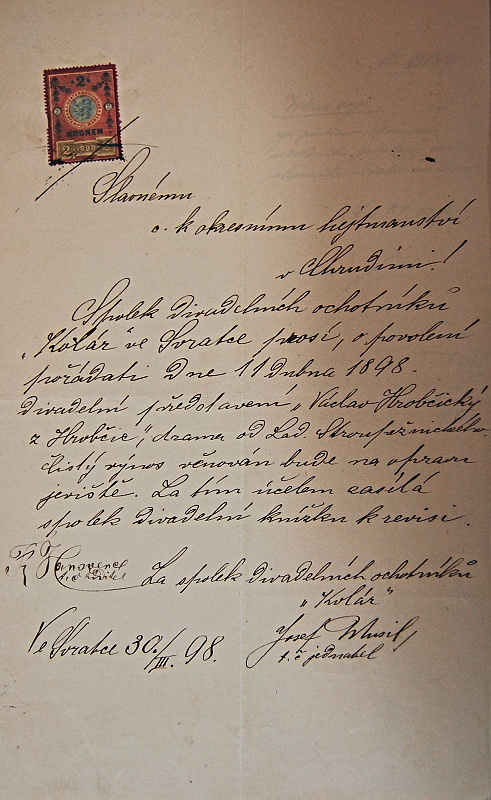 2
KRONEN
2 1898
Slavnému
c. k okresnímu hejtmanství
v Chrudimi!
Spolek divadelních ochotníků
„Kolár" ve Svratce prosí, o povolení
pořádati dne 11 dubna 1898.
divadelní představení „Václav Hrobčický
z Hrobčic", drama od Lad. Stroupežnického.
Čistý výnos věnován bude na opravu
jeviště. Za tím účelem zasílá
spolek divadelní knížku k revisi.
t. č. ředitel
Za spolek divadelních ochotníků
„Kolár"
Ve Svratce 30./III. 98.
Josef Musil,
t. č jednatel